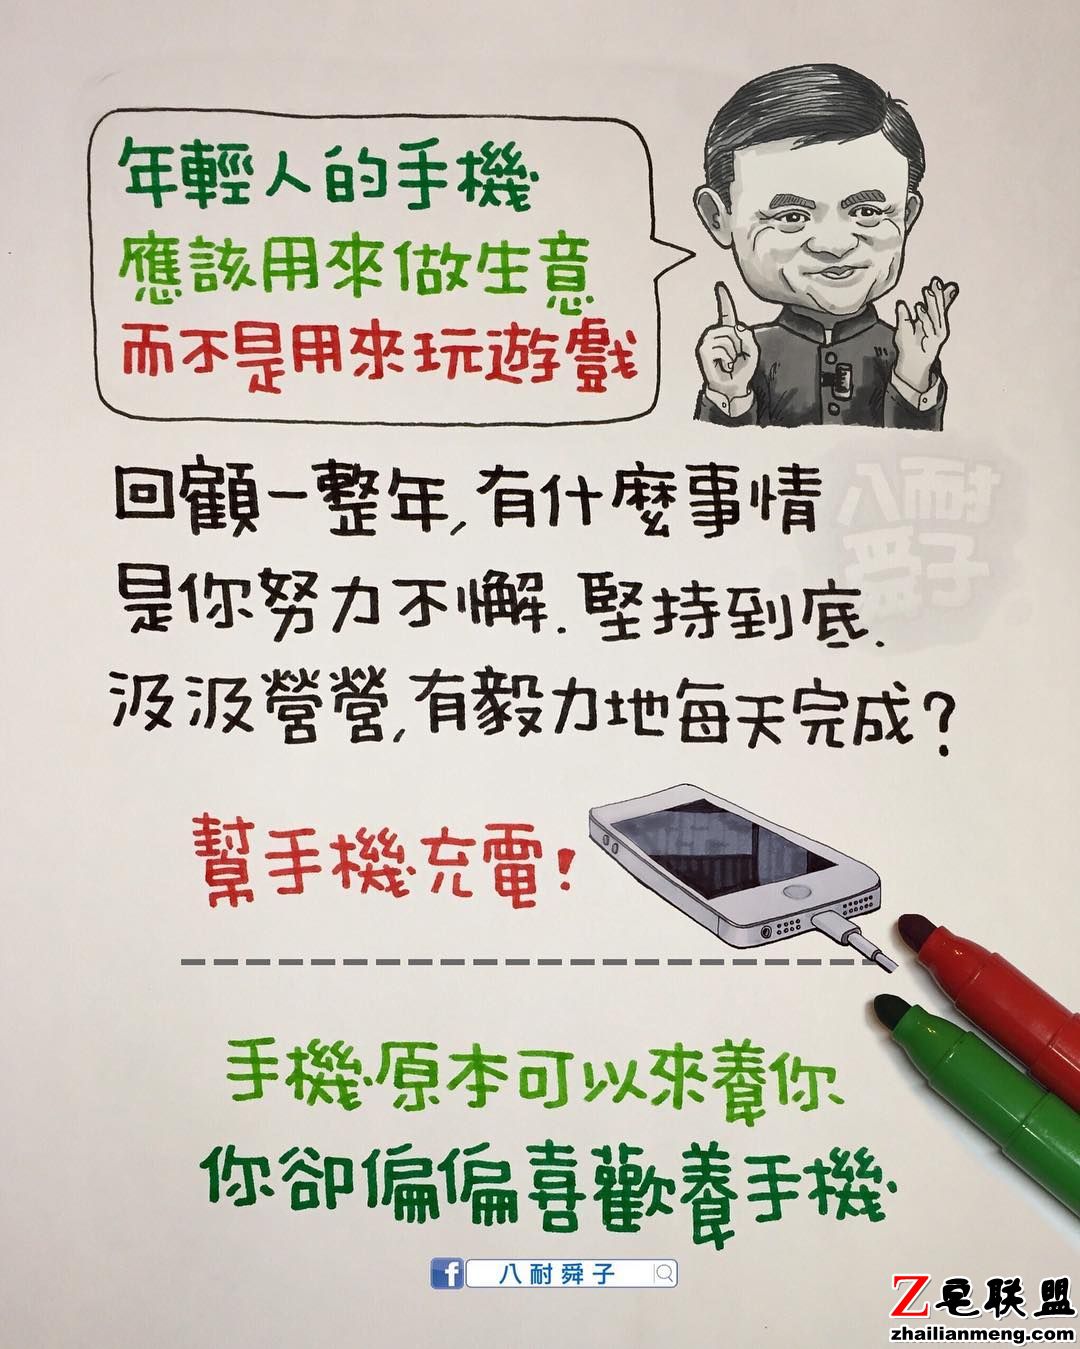 年輕人的手機
應該用來做生意
而不是用來玩遊戲
回顧一整年,有什麼事情
是你努力不懈.堅持到底.
汲汲營營,有毅力地每天完成?
幫手機充電!
手機原本可以來養你
你卻偏偏喜歡養手機
八耐舜子
f 八耐舜子
Z皂联盟
zhailianmeng.com